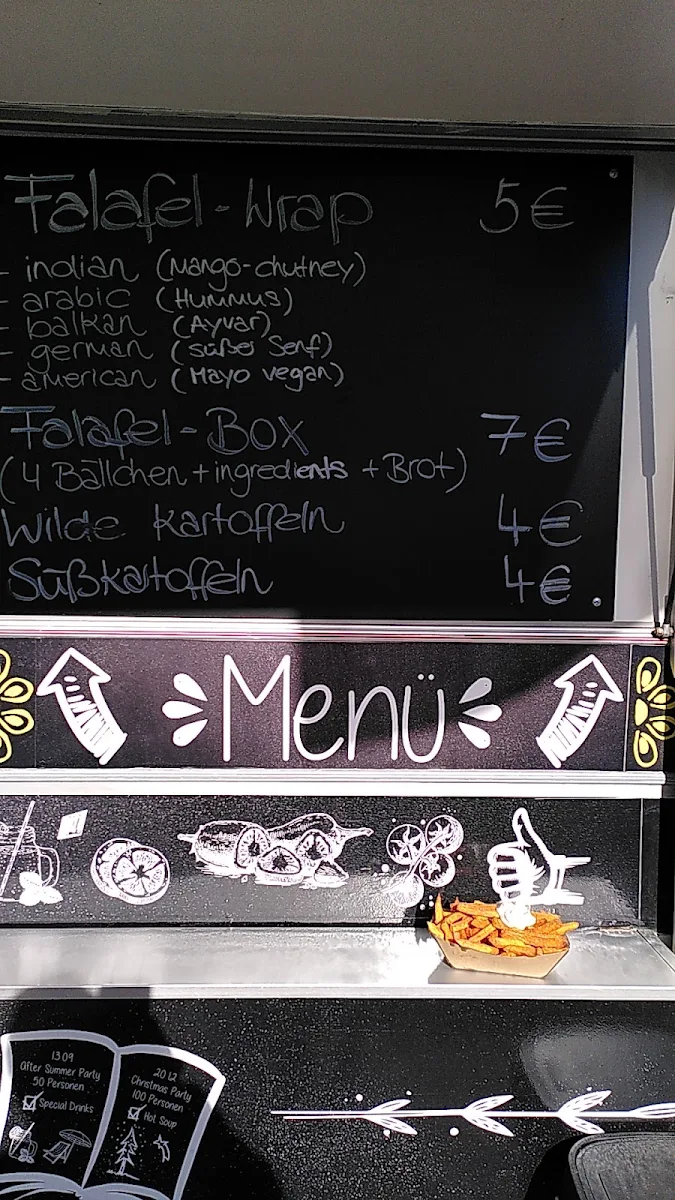 Falafel-Wrap 5€
- indian (Mango-chutney)
- arabic (Hummus)
- balkan (Ayvar)
- german (süßer Senf)
- american (Mayo vegan)
Falafel-Box 7€
(4 Bällchen + ingredients + Brot)
Wilde Kartoffeln 4€
Süßkartoffeln 4€
Menü
1309
After Summer Party
50 Personen
Special Drinks
2012
Christmas Party
100 Personen
Hot Soup